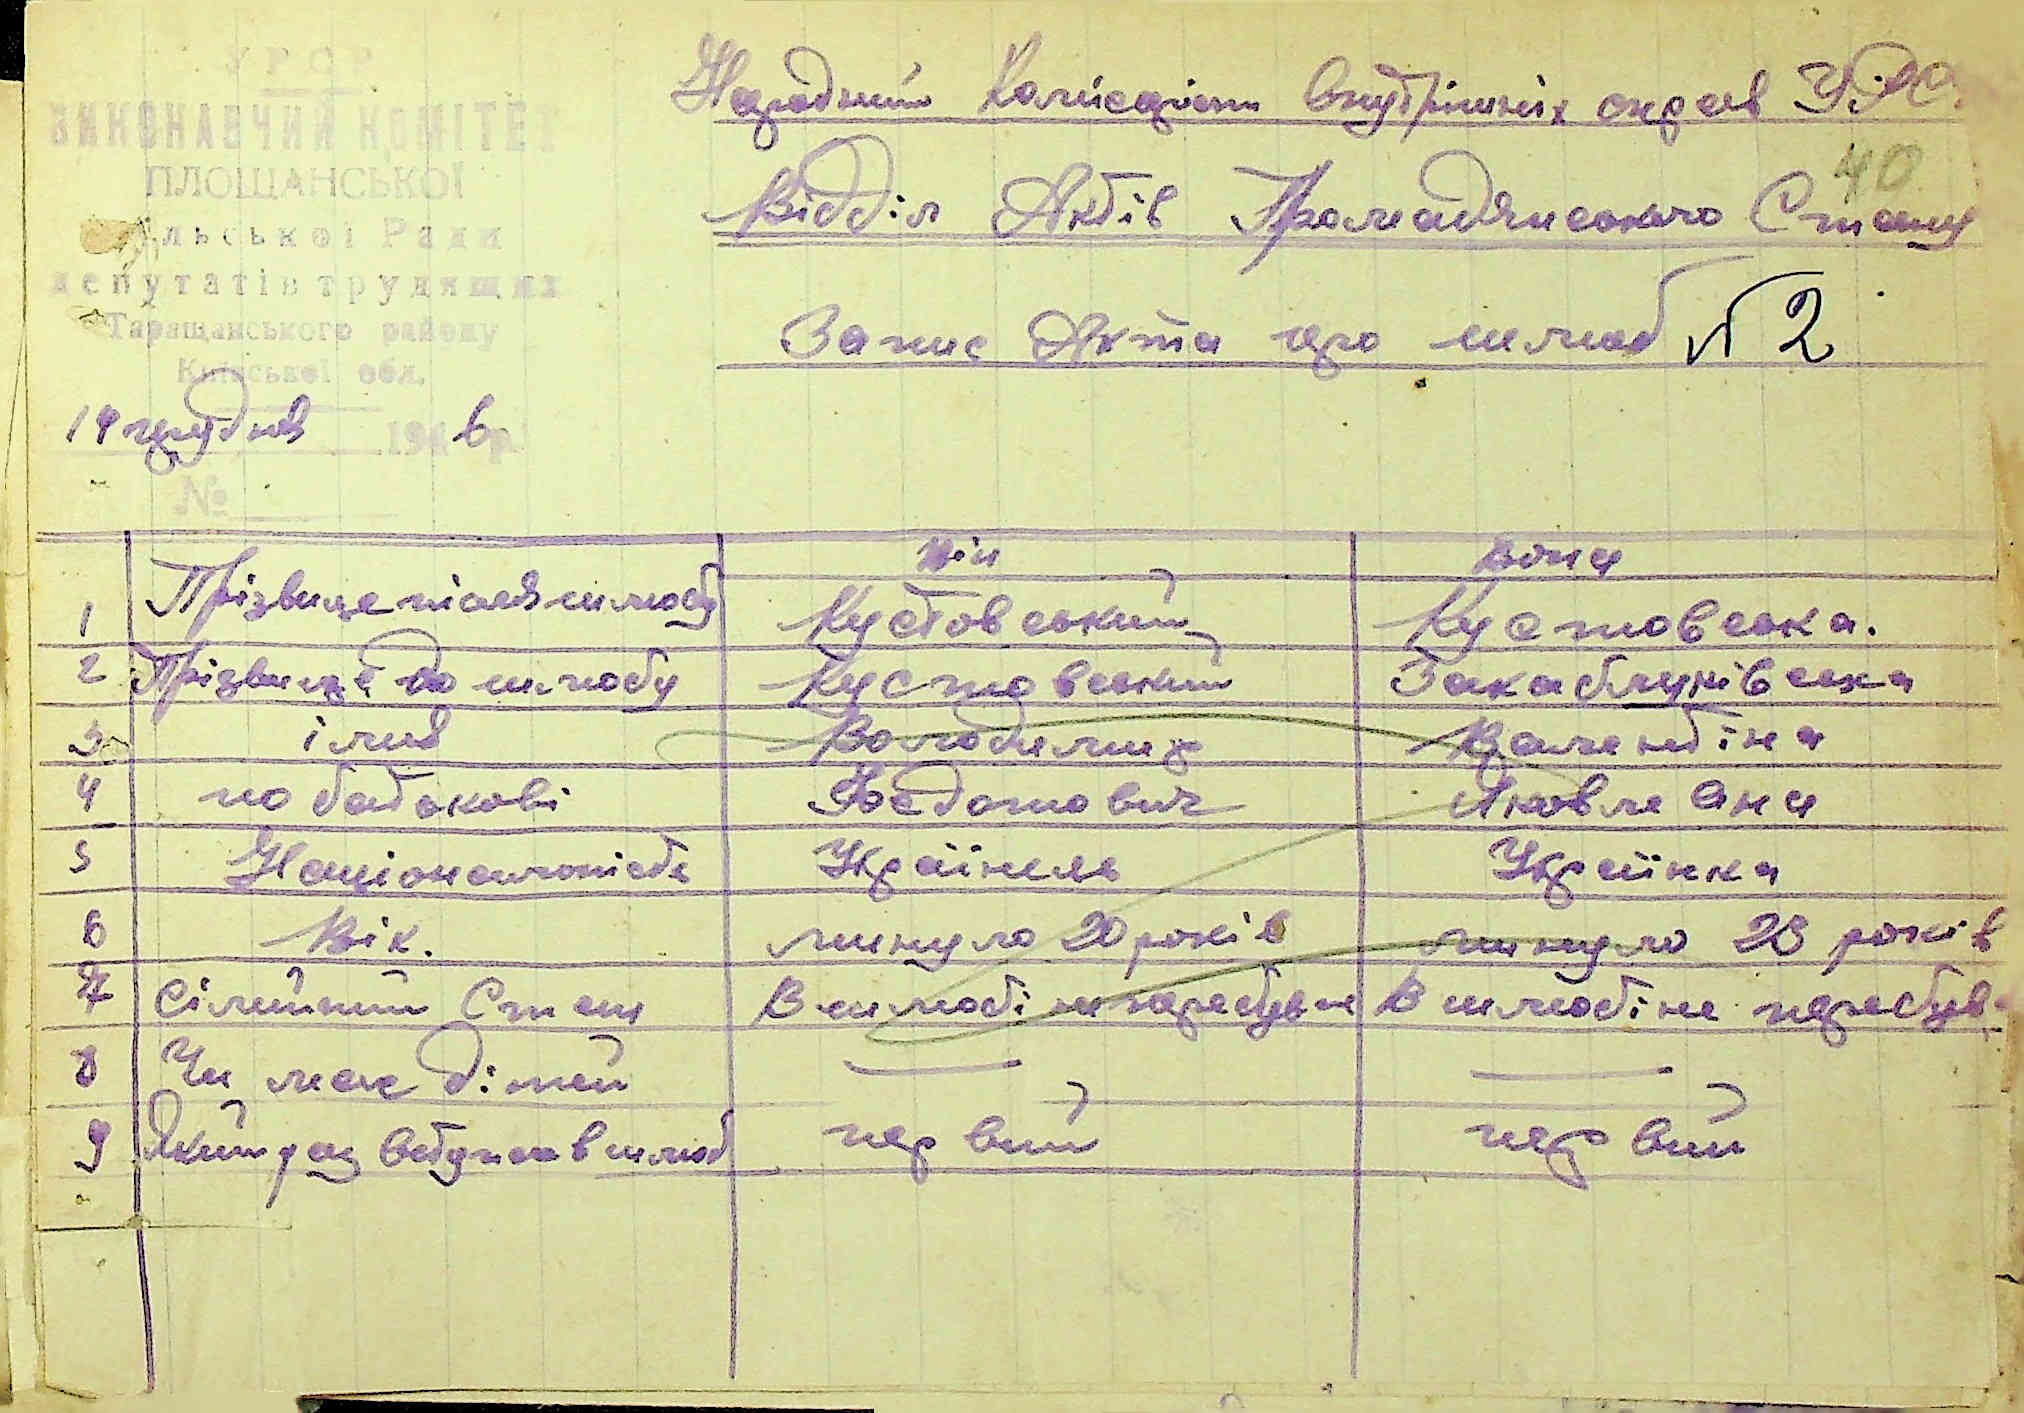 УРСР
ВИКОНАВЧИЙ КОМІТЕТ
ПЛОЩАНСЬКОЇ
сільської Ради
депутатів трудящих
Таращанського району
Київської обл.
14 грудня 1946 р.
№
Народний Комісаріат Внутрішніх справ УРСР
40
Відділ Актів Громадянського Стану
Запис Акта про шлюб № 2
він вона
1 Прізвище після шлюбу Кустовський Кустовська.
2 Прізвище до шлюбу Кустовський Закаблуківська
3 імя Володимир Валентіна
4 по батькові Федотович Яковлевна
5 Національність Українець Українка
6 Вік. минуло 20 років минуло 23 років
7 Сімейний Стан В шлюбі не перебував В шлюбі не перебув
8 Чи має дітей — —
9 Який раз вступає в шлюб первий первий